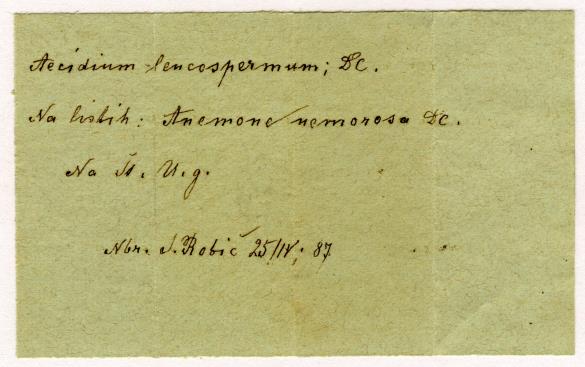 Aecidium leucospermum; DC.
Na listih: Anemone nemorosa DC.
Na Šl. U. g.
Nbr. S. Robič 25/IV; 87